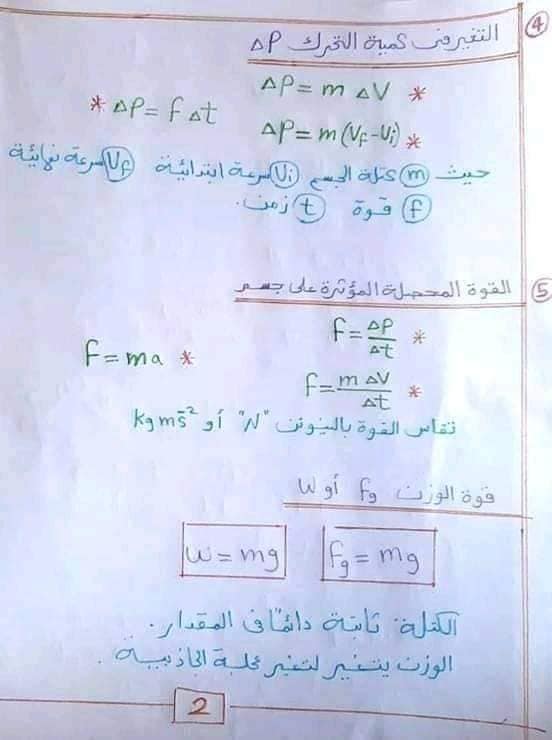 ④ التغير فى كمية التحرك ΔP
* ΔP = m ΔV
* ΔP = f Δt
* ΔP = m (Vf - Vi)
حيث (m) كتلة الجسم (Vi) سرعة ابتدائية (Vf) سرعة نهائية
(f) قوة (t) زمن.
⑤ القوة المحصلة المؤثرة على جسم
* f = ΔP/Δt
* F = ma
* f = m ΔV/Δt
تقاس القوة بالنيوتن "N" أو kg m s⁻²
قوة الوزن fg أو W
fg = mg
w = mg
الكتلة ثابتة دائمًا فى المقدار.
الوزن يتغير لتغير عجلة الجاذبية.
2